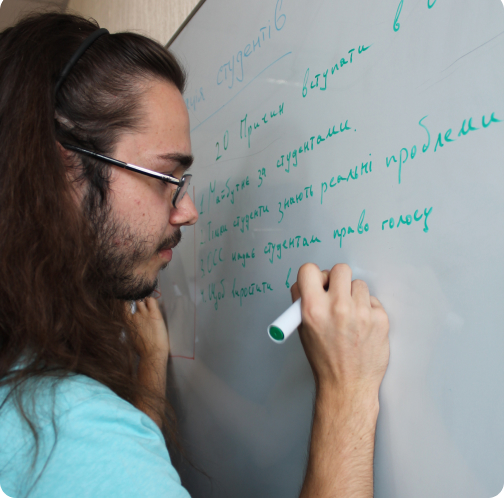 студентів
20 Причин вступати в
1 Майбутнє за студентами.
студенти знають реальні проблеми
надав студентам право голосу
4. Щоб